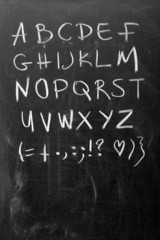 ABCDEF
GHIJKLM
NOPQRST
UVWXYZ
(=+.,:;!? ♡)}